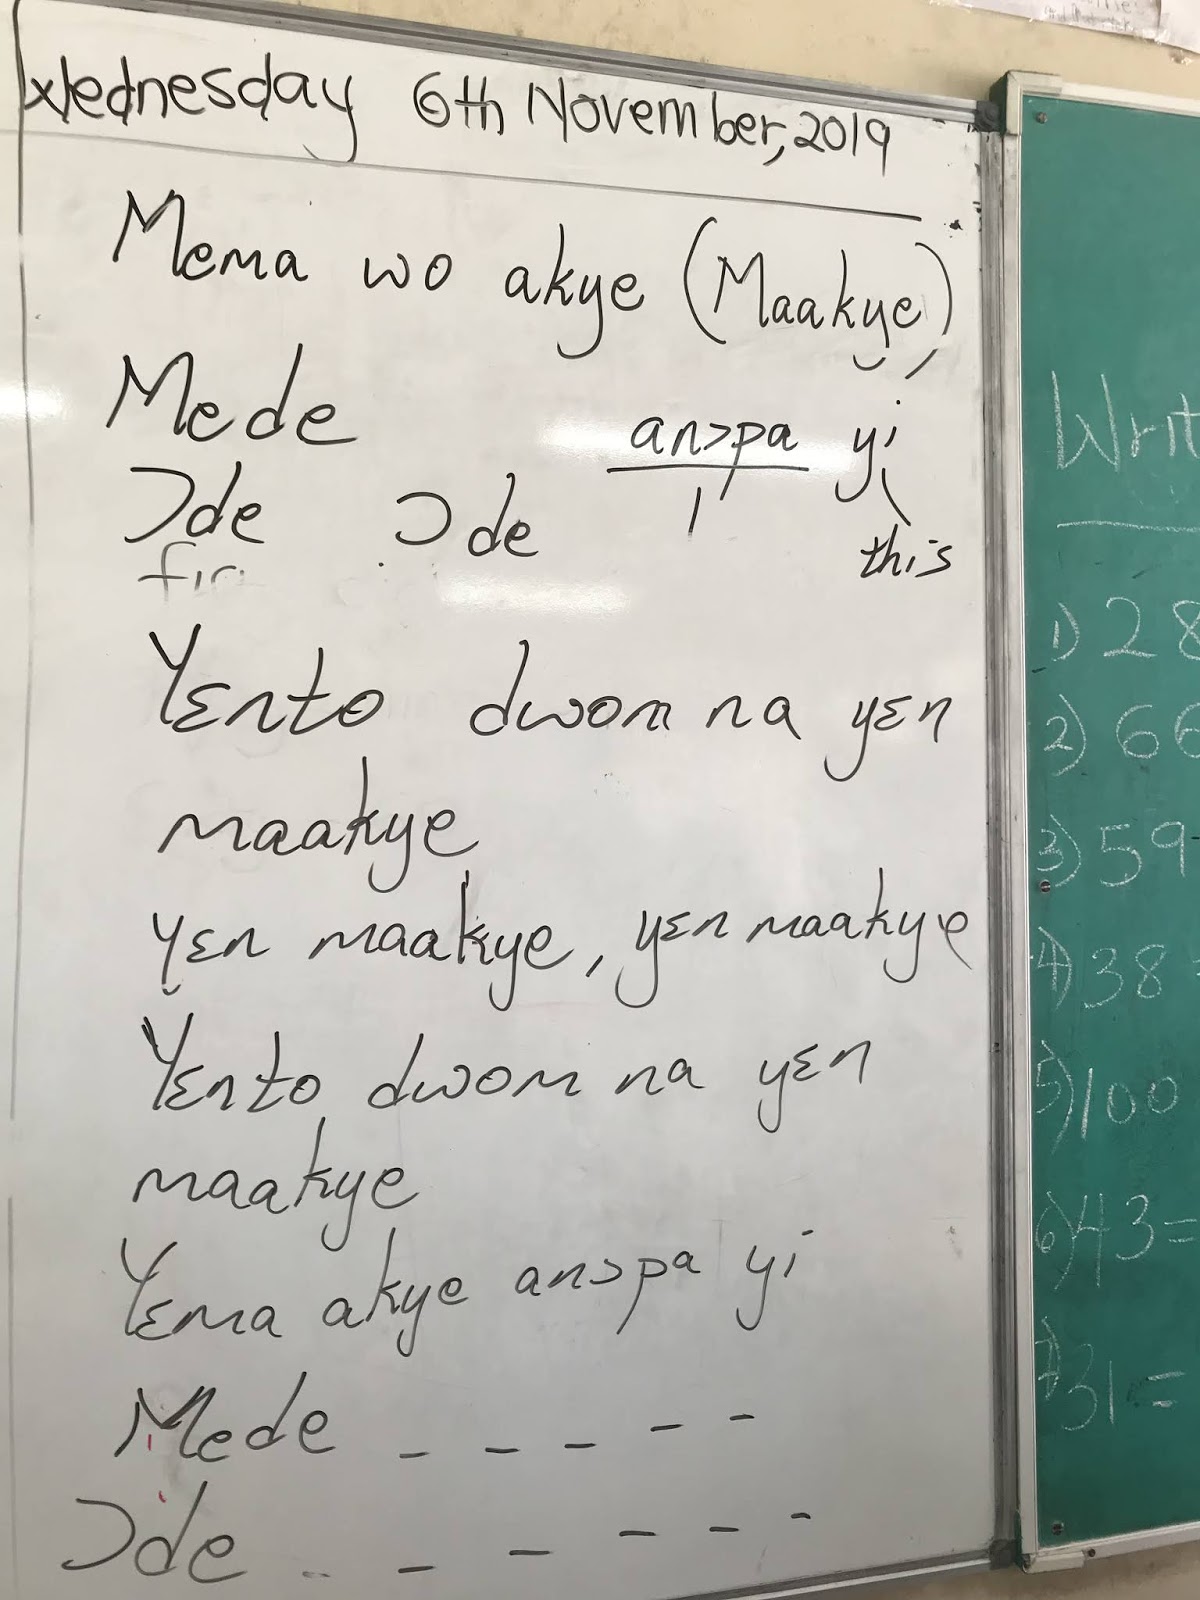 Wednesday 6th November, 2019
Mema wo akye (Maakye)
Mede anɔpa yi
Ɔde Ɔde this
Yɛnto dwom na yɛn
maakye
yɛn maakye, yɛn maakye
Yɛnto dwom na yɛn
maakye
Yɛma akye anɔpa yi
Mede _ _ _ _ _
Ɔde _ _ _ _ _ _
Writ
1) 28
2) 66
3) 59
4) 38
5) 100
6) 43 =
7) 31 =